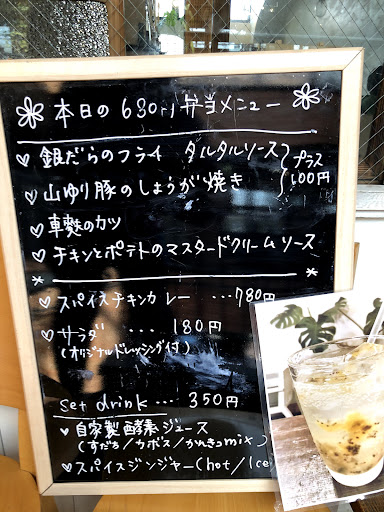 本日の680円弁当メニュー
銀だらのフライ タルタルソース プラス
山ゆり豚のしょうが焼き 100円
車麩のカツ
チキンとポテトのマスタードクリームソース
スパイスチキンカレー ・・・780円
サラダ ・・・・ 180円
(オリジナルドレッシング付)
set drink・・・ 350円
自家製酵素ジュース
(すだち/カボス/かんきつmix)
スパイスジンジャー(hot/Ice